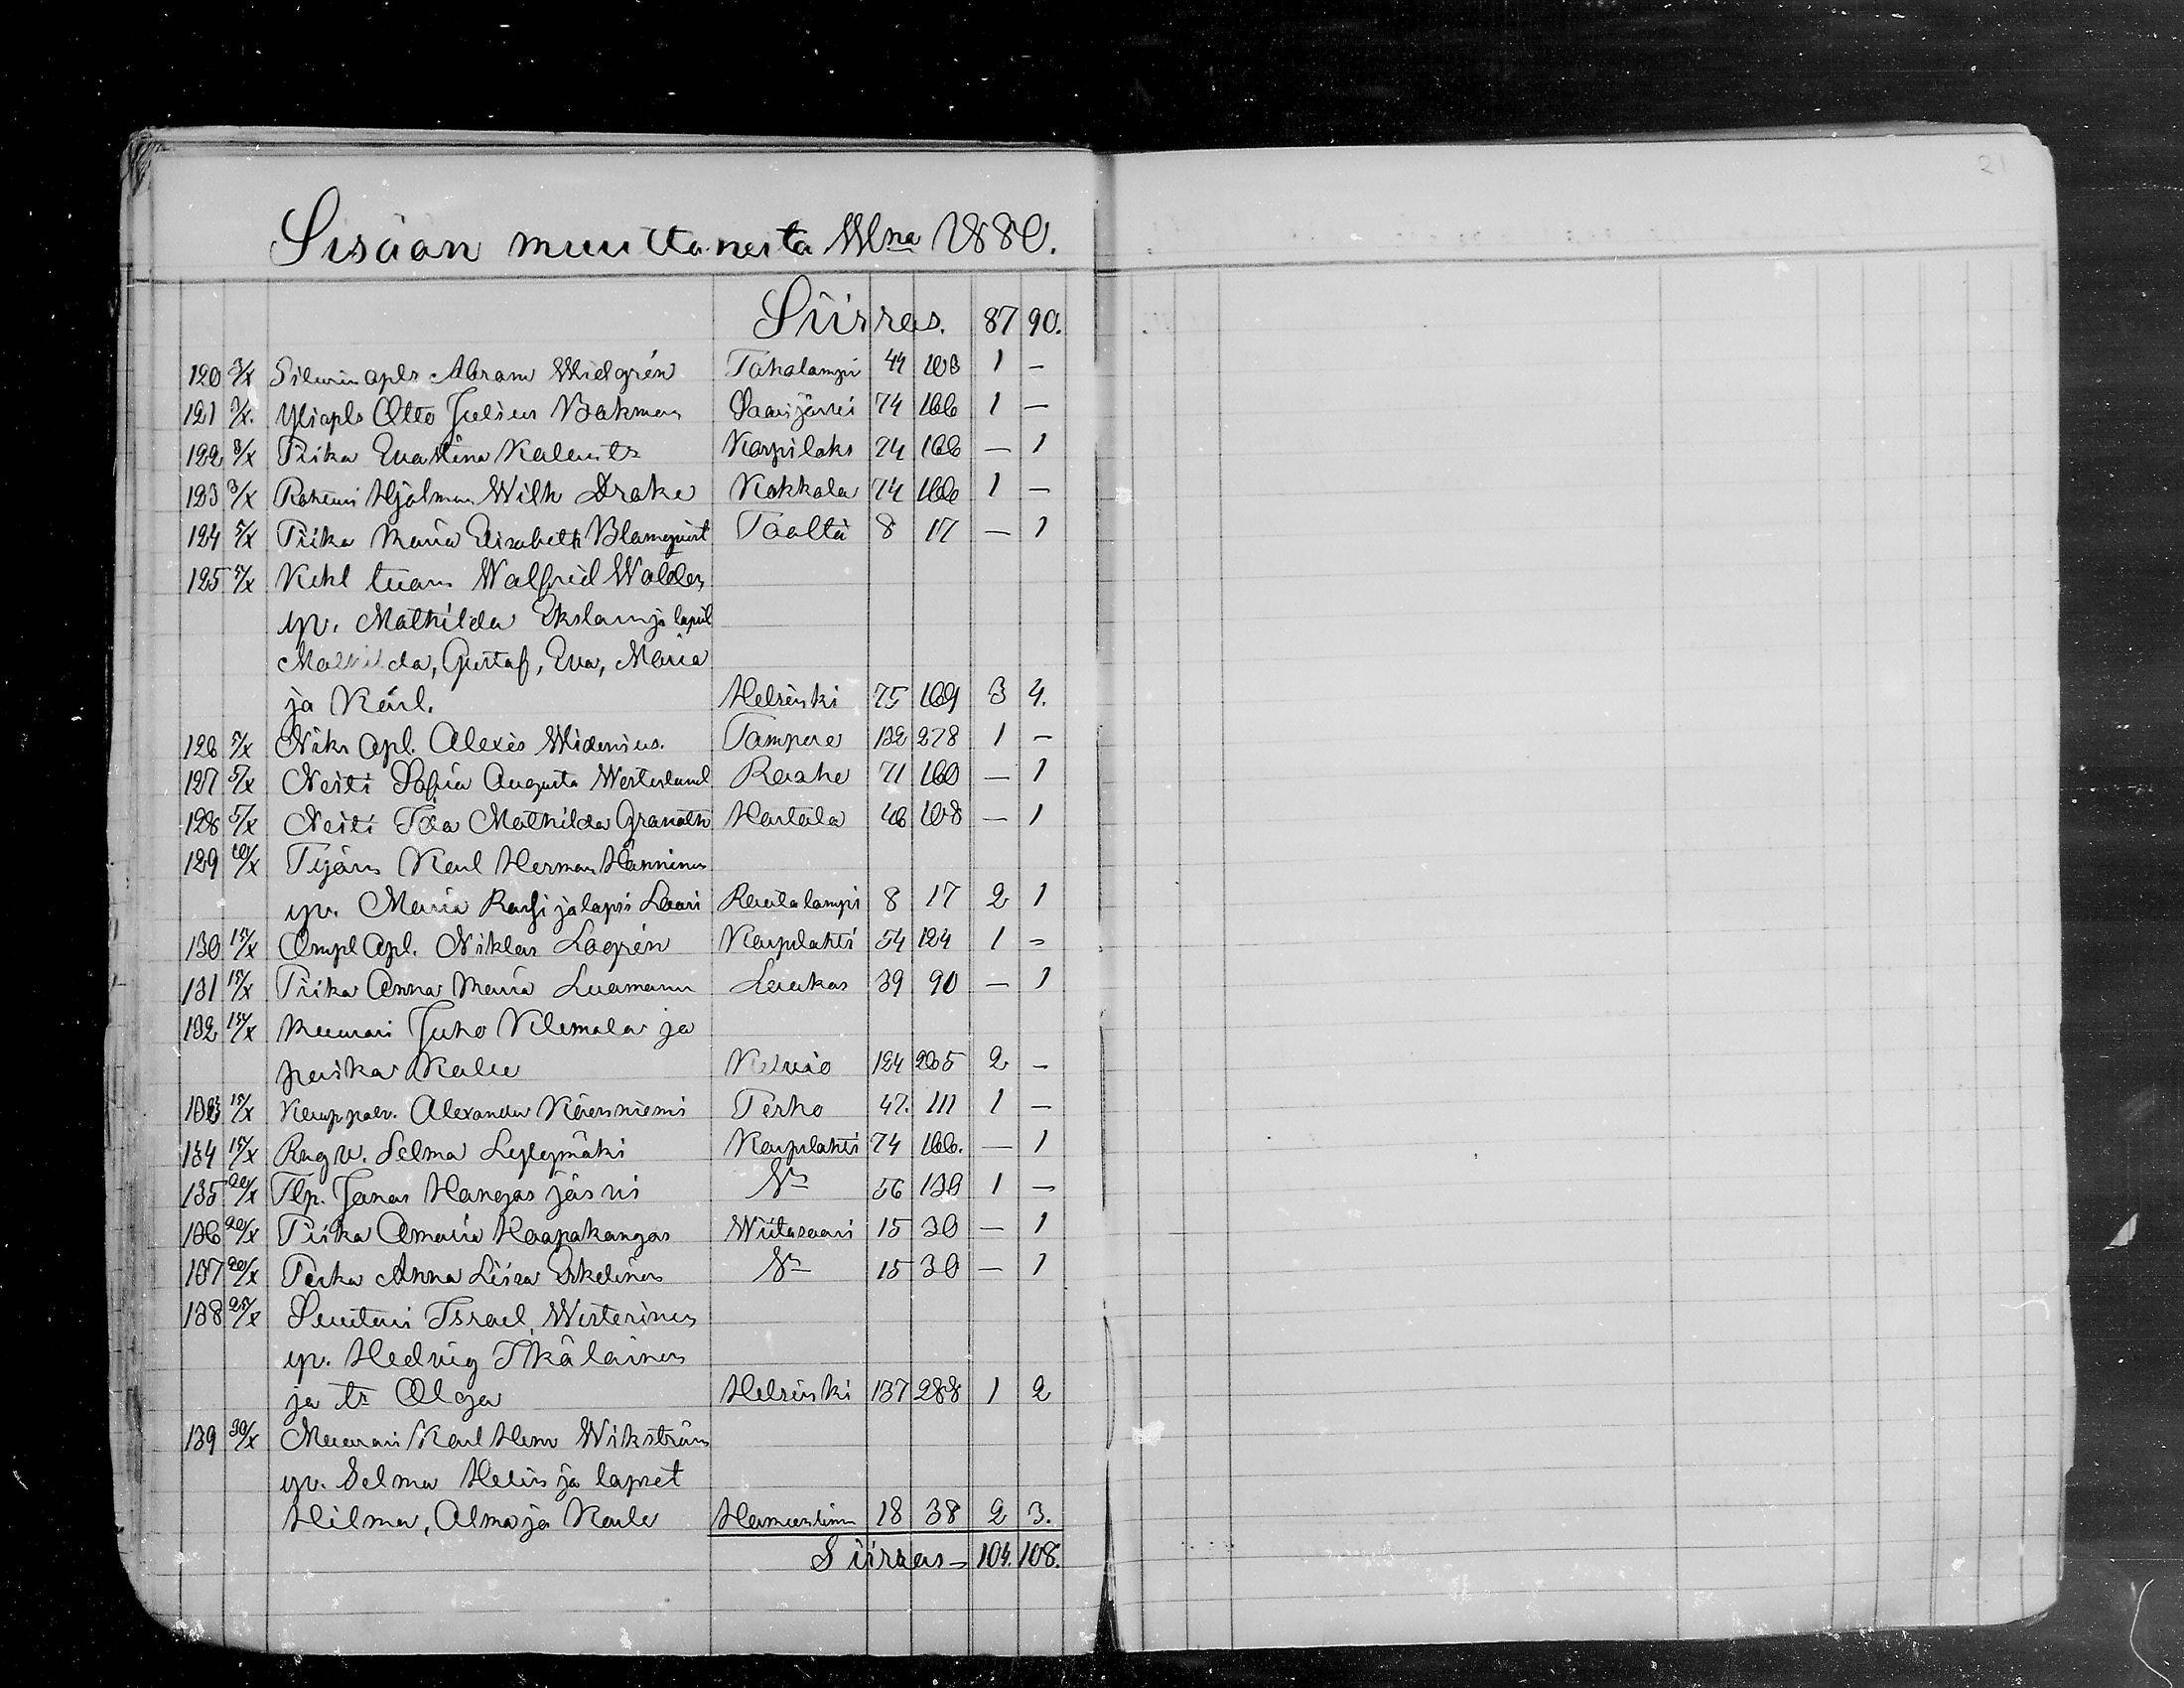 21
Sisään muuttaneita Wna 1880.
Siirras. 87 90.
120 3/X apls Abram Widgrén Toholampi 44 103 1 —
121 3/X. Yliapls Otto Julius Bakman Saarijärvi 74 166 1 —
122 3/X Piika Eva Stina Kalentr Karpilaks 74 166 — 1
123 3/X Hjalmar Wilh Drake Kokkola 74 166 1 —
124 5/X Piika Maria Elisabeth Blomqvist Täältä 8 17 — 1
125 5/X Walfrid Walden
vp. Mathilda ja
Mathilda, Gustaf, Eva, Maria
ja Karl. Helsinki 75 169 3 4.
126 5/X Niks apl. Alexis Widenius. Tampere 132 278 1 —
127 5/X Neiti Sofia Augusta Westerlund Raahe 71 160 — 1
128 5/X Neiti Ida Mathilda Granath Hartala 46 108 — 1
129 10/X Karl Herman Hänninen
vp. Maria ja lapsi Lauri Rautalampi 8 17 2 1
130 15/X Ompl apl. Niklas Lagrén Kauplahti 54 124 1 –
131 15/X Piika Anna Maria Luamann Laukas 39 90 — 1
132 15/X Muurari Juho Klemola ja
poika Kalu Kelviö 124 265 2 –
133 15/X Kauppalv. Alexander Köyrsniemi Perho 47. 111 1 —
134 15/X Selma Lylymäki Kauplahti 74 166. — 1
135 20/X Tlp. Jonas Hangasjärvi 56 130 1 —
136 20/X Piika Amaria Haapakangas Wiitasaari 15 30 — 1
137 20/X Piika Anna Liisa Eskelinen 15 30 — 1
138 25/X Suutari Israel Westerinen
vp. Hedvig Ikäläinen
ja tr Olga Helsinki 137 288 1 2
139 30/X Muurari Karl Herm Wikström
vp. Selma Helin ja lapset
Hilma, Alma ja Kaarle Hämeenlinn 18 38 2 3.
Siirras — 104. 108.